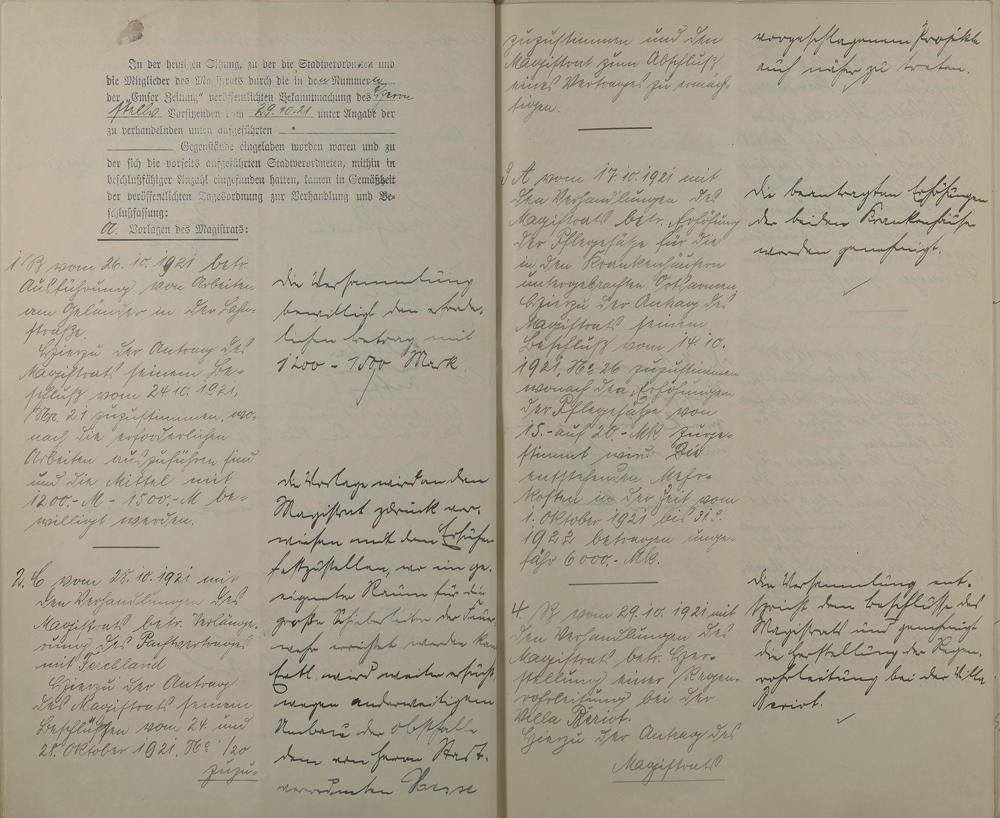 In der heutigen Sitzung, zu der die Stadtverordneten und
die Mitglieder des Magistrats durch die in den Nummern
der „Emser Zeitung" veröffentlichten Bekanntmachung des Herrn
stellv. Vorsitzenden vom 29.10.21 unter Angabe der
zu verhandelnden unten aufgeführten
Gegenstände eingeladen worden waren und zu
der sich die vorseits aufgeführten Stadtverordneten, mithin in
beschlußfähiger Anzahl eingefunden hatten, kamen in Gemäßheit
der veröffentlichten Tagesordnung zur Verhandlung und Be-
schlußfassung:
a. Vorlagen des Magistrats:
1 B vom 26.10.1921 betr.
Ausführung von Arbeiten
am Geländer in der Lahn-
straße.
Hierzu der Antrag des
Magistrats seinem Be-
schluß vom 24.10.1921,
Nr. 21 zuzustimmen, wo-
nach die erforderlichen
Arbeiten auszuführen sind
und die Mittel mit
1200.- M - 1500.- M be-
willigt werden.
die Versammlung
bewilligt den erforder-
lichen Betrag mit
1200 - 1500 Mark.
2. C vom 28.10.1921 mit
den Verhandlungen des
Magistrats betr. Verlänge-
rung des Pachtvertrages
mit Ferchland
Hierzu der Antrag
des Magistrats seinem
Beschlüssen vom 24. und
28. Oktober 1921. No 1/20
zuzu-
die Vorlage wird an den
Magistrat zurück ver-
wiesen mit dem Ersuchen
festzustellen, wo ein ge-
eigneter Raum für die
große Schiebeleiter der Feuer-
wehr errichtet werden kann
Evtl. wird weiter ersucht
wegen anderweitigen
Umbau der
dem von Herrn Stadt-
verordneten
zuzustimmen und den
Magistrat zum Abschluß
eines Vertrages zu ermäch-
tigen.
vorgeschlagenem Projekte
auch näher zu treten.
3 A. vom 17.10.1921 mit
den Verhandlungen des
Magistrats betr. Erhöhung
der Pflegesätze für die
in den Krankenhäusern
untergebrachten Ortsarmen
Hierzu der Antrag des
Magistrats seinem
Beschluß vom 14.10.
1921, No 26 zuzustimmen
wonach den Erhöhungen
der Pflegesätze von
15.- auf 20.- Mk zuge-
stimmt wird. Die
entstehenden Mehr-
kosten in der Zeit vom
1. Oktober 1921 bis 31.3.
1922 betragen unge-
fähr 6000.- Mk.
die beantragten Erhöhungen
der beiden Krankenhäuser
werden genehmigt.
4 B vom 29.10.1921 mit
den Verhandlungen des
Magistrats betr. Her-
stellung einer Regen-
rohrleitung bei der
Villa Beriot.
Hierzu der Antrag des
Magistrats
die Versammlung ent-
spricht dem Beschlusse des
Magistrats und genehmigt
die Herstellung der Regen-
rohrleitung bei der Villa
Beriot.